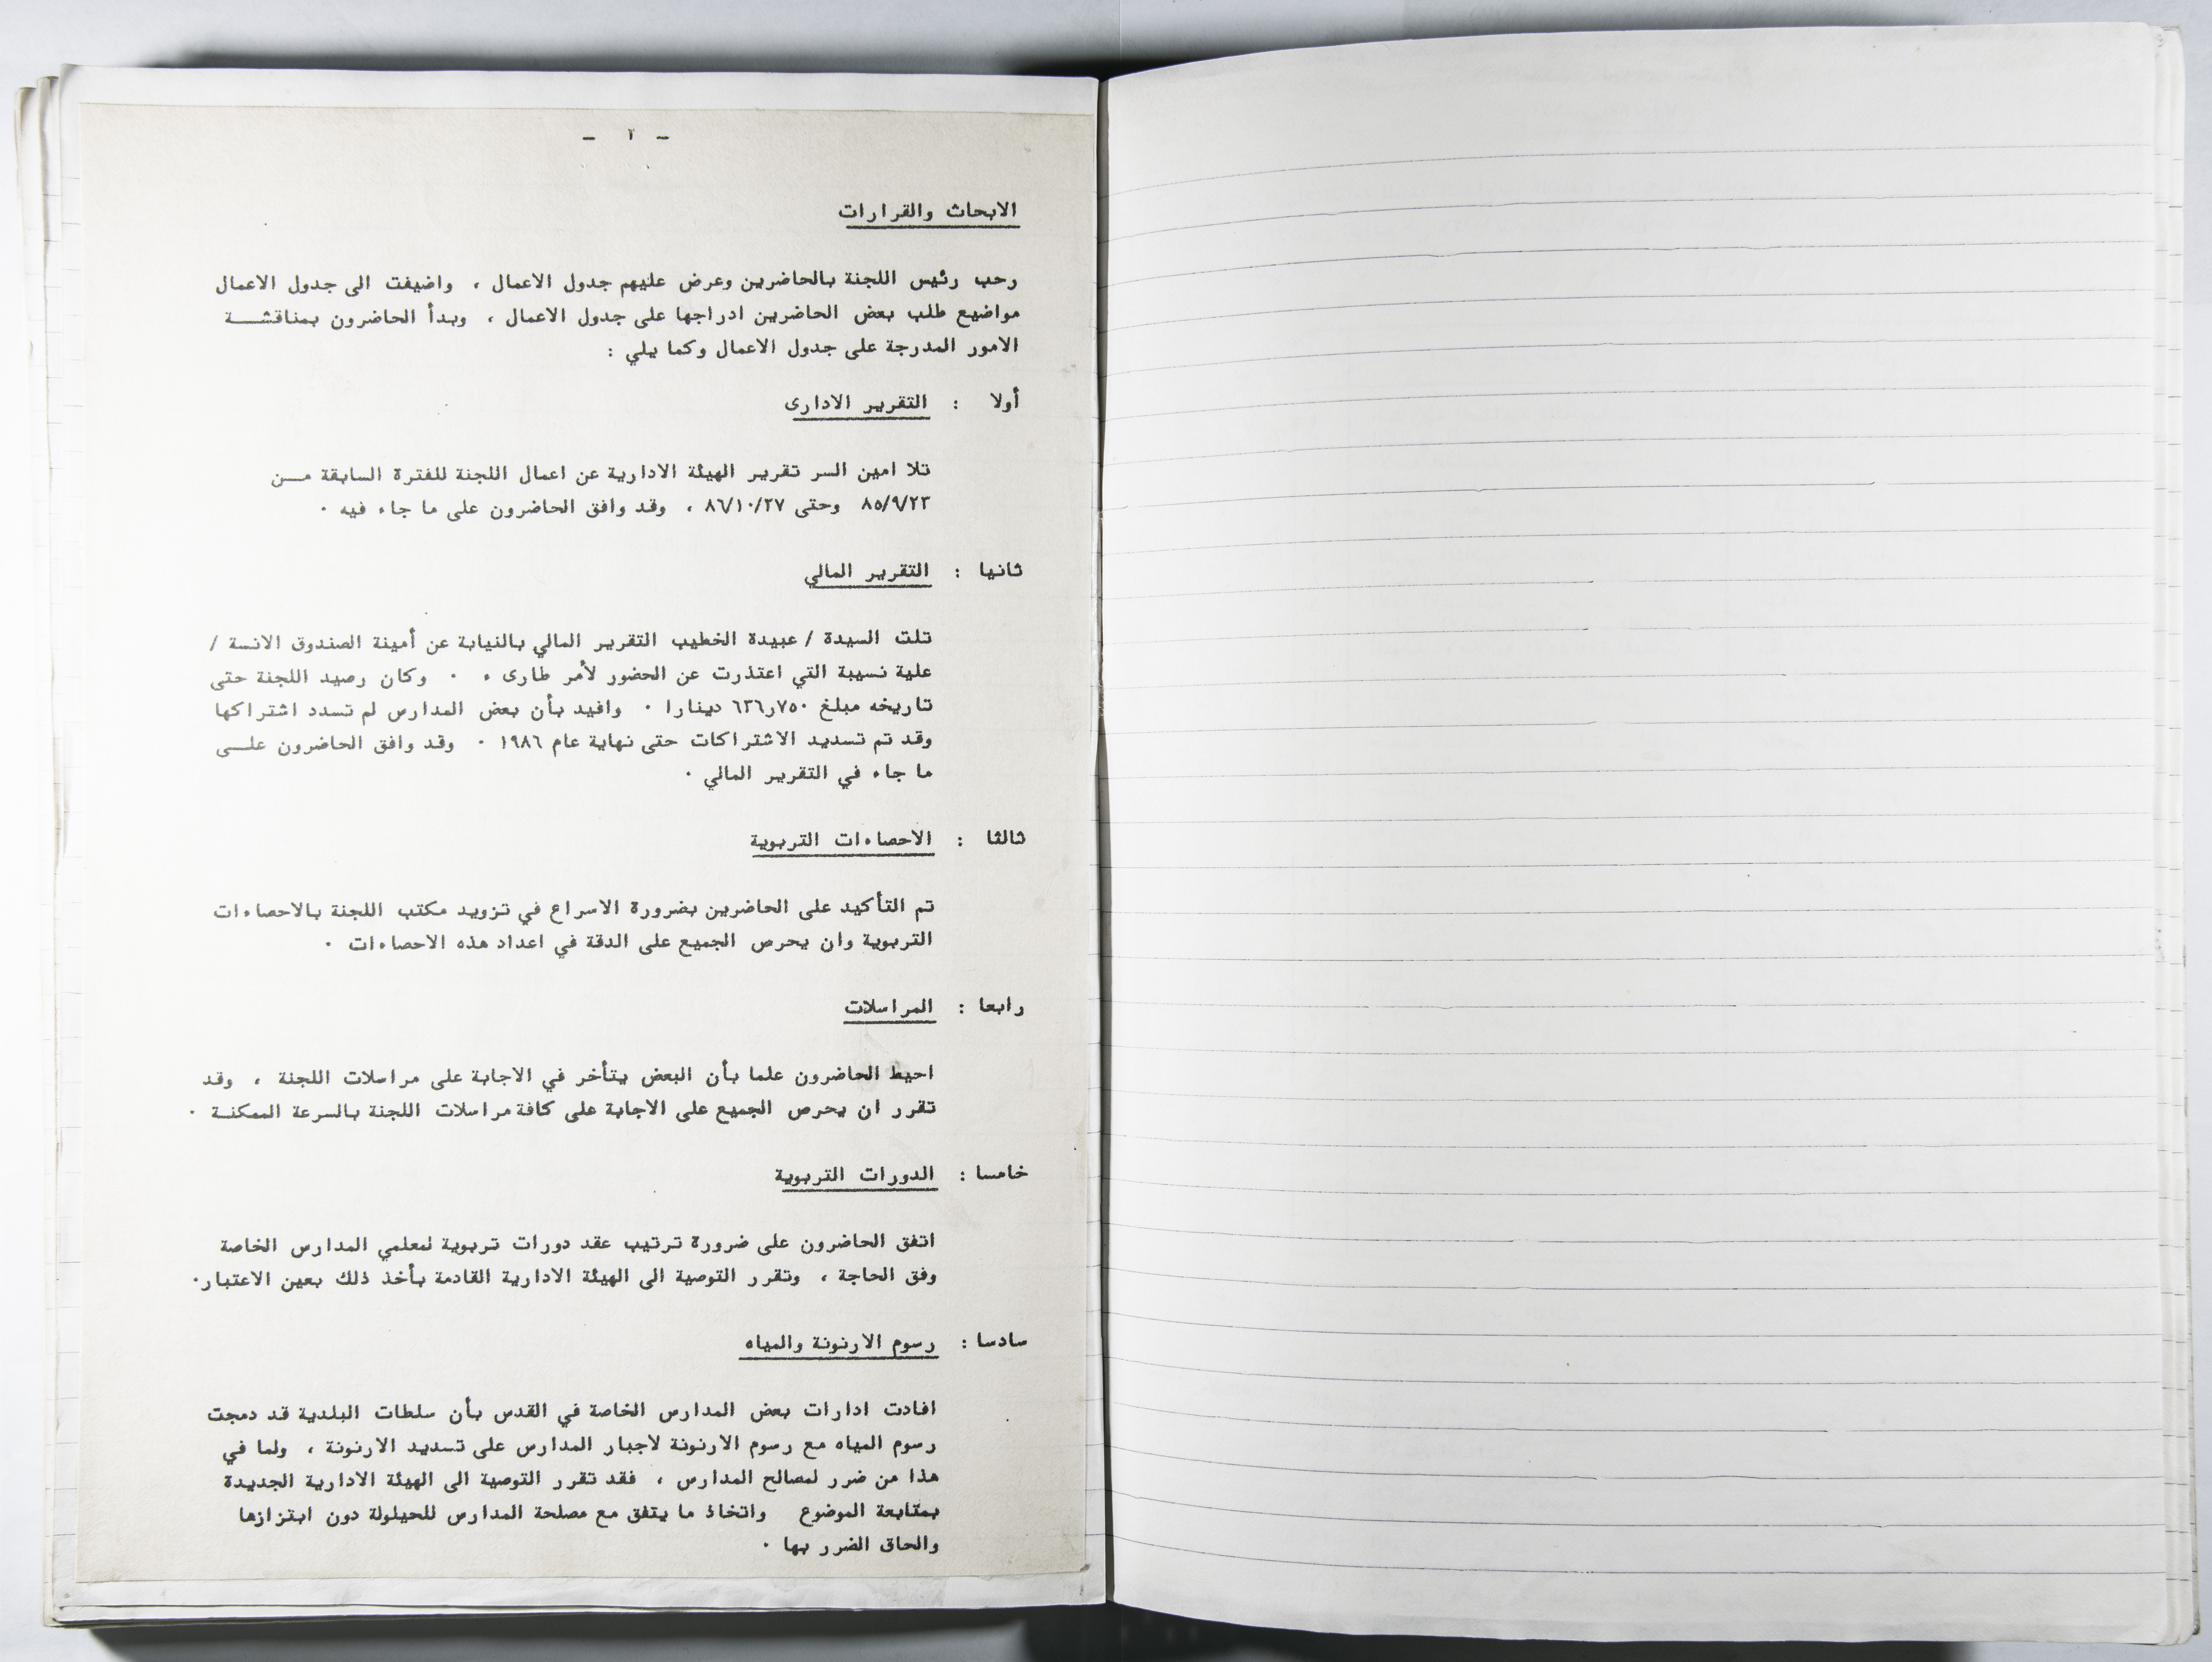 - ٢ -
الابحاث والقرارات
رحب رئيس اللجنة بالحاضرين وعرض عليهم جدول الاعمال ، واضيفت الى جدول الاعمال
مواضيع طلب بعض الحاضرين ادراجها على جدول الاعمال ، وبدأ الحاضرون بمناقشة
الامور المدرجة على جدول الاعمال وكما يلي :
أولا : التقرير الادارى
تلا امين السر تقرير الهيئة الادارية عن اعمال اللجنة للفترة السابقة من
٨٥/٩/٢٣ وحتى ٨٦/١٠/٢٧ ، وقد وافق الحاضرون على ما جاء فيه ٠
ثانيا : التقرير المالي
تلت السيدة / عبيدة الخطيب التقرير المالي بالنيابة عن أمينة الصندوق الانسة /
علية نسيبة التي اعتذرت عن الحضور لأمر طارىء ٠ وكان رصيد اللجنة حتى
تاريخه مبلغ ٧٥٠ر٦٣٦ دينارا ٠ وافيد بأن بعض المدارس لم تسدد اشتراكها
وقد تم تسديد الاشتراكات حتى نهاية عام ١٩٨٦ ٠ وقد وافق الحاضرون على
ما جاء في التقرير المالي ٠
ثالثا : الاحصاءات التربوية
تم التأكيد على الحاضرين بضرورة الاسراع في تزويد مكتب اللجنة بالاحصاءات
التربوية وان يحرص الجميع على الدقة في اعداد هذه الاحصاءات ٠
رابعا : المراسلات
احيط الحاضرون علما بأن البعض يتأخر في الاجابة على مراسلات اللجنة ، وقد
تقرر ان يحرص الجميع على الاجابة على كافة مراسلات اللجنة بالسرعة الممكنة ٠
خامسا : الدورات التربوية
اتفق الحاضرون على ضرورة ترتيب عقد دورات تربوية لمعلمي المدارس الخاصة
وفق الحاجة ، وتقرر التوصية الى الهيئة الادارية القادمة بأخذ ذلك بعين الاعتبار٠
سادسا : رسوم الارنونة والمياه
افادت ادارات بعض المدارس الخاصة في القدس بأن سلطات البلدية قد دمجت
رسوم المياه مع رسوم الارنونة لاجبار المدارس على تسديد الارنونة ، ولما في
هذا من ضرر لمصالح المدارس ، فقد تقرر التوصية الى الهيئة الادارية الجديدة
بمتابعة الموضوع واتخاذ ما يتفق مع مصلحة المدارس للحيلولة دون ابتزازها
والحاق الضرر بها ٠